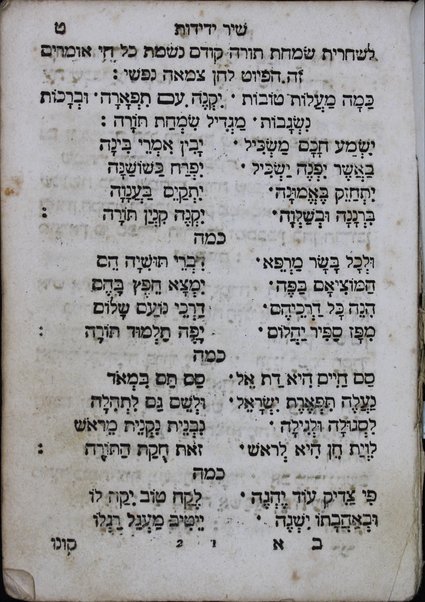 שיר ידידות ט
לשחרית שמחת תורה קודם נשמת כל חי אומרים
זה הפיוט לחן צמאה נפשי :
כַּמָה מַעֲלוֹת טוֹבוֹת ׳ יִקְנֶה עִם תִּפְאָרָה ׳ וּבְרָכוֹת
נִשְׂגָּבוֹת ׳ מַגְדִיל שִׂמְחַת תּוֹרָה :
יִשְׁמַע חָכָם מַשְׂכִּיל ׳ יָבִין אִמְרֵי בִינָה
בַּאֲשֶׁר יִפְנֶה יַשְׂכִּיל ׳ יִפְרַח כַּשׁוֹשַׁנָּה
יִתְחַזֵק בֶּאֱמוּנָה ׳ יִתְקַיֵּם בַּעֲנָוָה
בִּרְנָנָה וּבְשַׁלְוָה ׳ יִקְנֶה קִנְיַן תּוֹרָה :
כמה
וּלְכָל בָּשָׂר מַרְפֵּא ׳ דִּבְרֵי תוּשִׁיָּה הֵם
הַמוֹצִיאָם בַּפֶּה ׳ יִמְצָא חֵפֶץ בָּהֶם
הִנֵּה כָּל דְּרָכֶיהָ ׳ דַּרְכֵי נוֹעַם שָׁלוֹם
מִפָּז סַפִּיר יַהֲלוֹם ׳ יָפֶה תַלְמוּד תּוֹרָה :
כמה
סַם חַיִּים הִיא דַת אֵל ׳ סַם תָּם בִּמְאֹד
נַעֲלָה תִּפְאֶרֶת יִשְׂרָאֵל ׳ וּלְשֵׁם גַּם לִתְהִלָּה
לִסְגוּלָּה וּלְגִילָה ׳ נִבְנֵית נִקְנֵית מֵרֹאשׁ
לִוְיַת חֵן הִיא לְרֹאשׁ ׳ זֹאת חֻקַת הַתּוֹרָה :
כמה
פִּי צַדִּיק עוֹד יֶהְגֶּה ׳ לֶקַח טוֹב יִקַּח לוֹ
וּבְאַהֲבָתוֹ יִשְׁגֶּה ׳ יֵיטִיב מַעְגַּל רַגְלוֹ
ב א 1 2 קונו